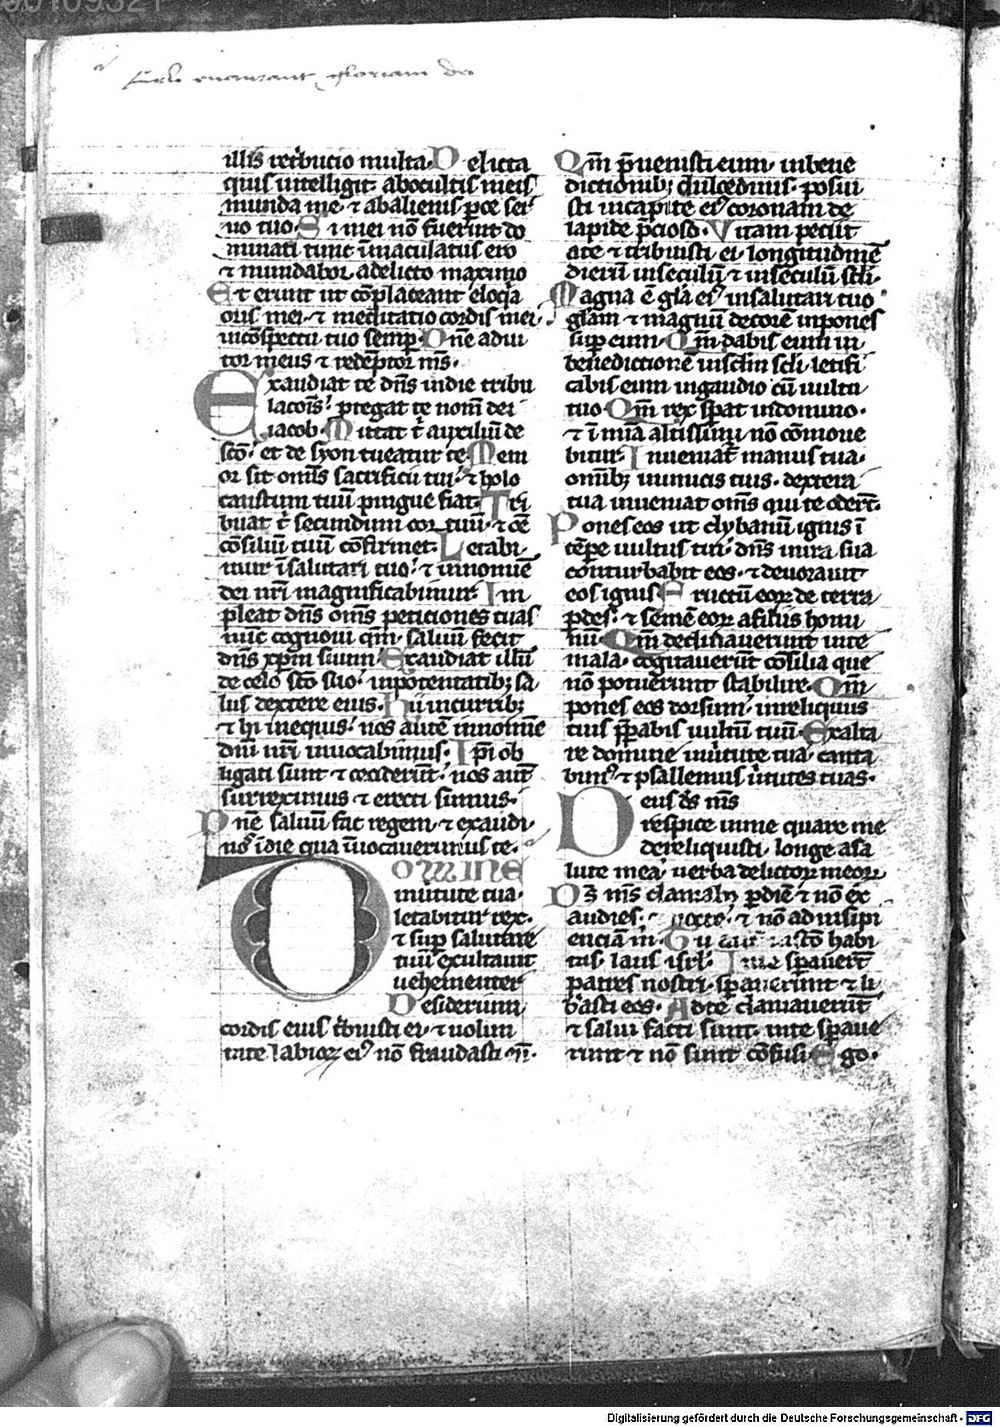 00109321
Celi enarrant gloriam dei
illis retˀbucio multa. Delicta
quis intelligit. abocultis meis
munda me. ⁊ abalienis ꝑce ser
uo tuo. Si mei nō fuerint do
minati tunc īmaculatus ero
⁊ mundabor adelicto maximo
Et erunt ut cōplaceant eloq̄a
oris mei. ⁊ meditatio cordis mei
incōspectu tuo semꝑ. Dn̄e adiu
tor meus ⁊ redēptor mī̄s.
Exaudiat te dn̄s indie tribu
lacōīs. ꝓtegat te nom̄ dei
iacob. Mittat t̄ auxiliū de
scō. et de syon tueatur te. Mem
or sit om̄s sacrificii tui. ⁊ holo
caustum tuū pingue fiat. Tri
buat t̄ secundum cor tuū. ⁊ oē
cōsiliū tuū cōfirmet. Letabi
mur īsalutari tuo. ⁊ innomīe
dei nr̄i magnificabimur. Im
pleat dn̄s om̄s peticiones tuas
nūc cognoui qm̄. saluū fecit
dn̄s xp̄m suum. Exaudiat illū
de celo scō suo. inpotentatibꝫ sa
lus dextere eius. hii incurribꝫ
⁊ hi inequis. nos autē innomīe
dn̄i nr̄i inuocabimus. Ip̄i ob
ligati sunt ⁊ ceciderūt. nos aut̄
surreximus ⁊ erecti sumus.
Dn̄e saluū fac regem. ⁊ exaudi
nos īdie qua īuocauerimus te.
DOMINE
inuirtute tua
letabitur rex.
⁊ suꝑ salutare
tuū exultauit
uehementer
Desiderium
cordis eius tˀbuisti ei. ⁊ uolun
tate labioꝝ eiꝰ nō fraudasti eū.
Qm̄ p̄uenisti eum. inbene
dictionibꝫ dulcedinis. posui
sti incapite eiꝰ coronam de
lapide p̄cioso. Vitam peciit
ate ⁊ tribuisti ei. longitudinē
dierū inseculū ⁊ inseculū scl̄i.
Magna ē gl̄a eiꝰ insalutari tuo
gl̄am ⁊ magnū decorē inpones
suꝑ eum. Qm̄ dabis eum in
benedictionē insclm̄ scl̄i. letifi
cabis eum ingaudio cū uultu
tuo. Qm̄ rex sꝑat indomino.
⁊ ī mīa altissimi nō cōmoue
bitur. Inueniat̄ manus tua.
omībꝫ inimicis tuis. dextera
tua inueniat om̄s qui te oder̄t.
Pones eos ut clybanū ignis ī
tēpe uultus tui. dn̄s inira sua
conturbabit eos. ⁊ deuorauit
eos ignis. Fructū eoꝝ de terra
ꝑdes. ⁊ semē eoꝝ afiliis homi
nū. Qm̄ declinauerunt inte
mala. cogitauerūt cōsilia que
nō potuerunt stabilire. Qm̄
pones eos dorsum. inreliquiis
tuis p̄ꝑabis uultū tuū. Exalta
re domine inuˀtute tua. canta
bimꝰ ⁊ psallemus uˀtutes tuas.
Deus d̄s mī̄s
respice inme quare me
dereliquisti. longe asa
lute mea uerba delictoꝝ meoꝝ
Dꝫ mī̄s clamabo ꝑdiē ⁊ nō ex
audies. nocte. ⁊ nō adinsipi
enciam m̄. Tu aut̄ inscō habi
tas. laus isrl̄. Inte sꝑauert̄
patres nostri. sꝑauerunt ⁊ li
bˀasti eos. Adte clamauerūt
⁊ salui facti sunt. inte sꝑaue
runt ⁊ nō sunt cōfusi. Ego.
Digitalisierung gefördert durch die Deutsche Forschungsgemeinschaft - DFG